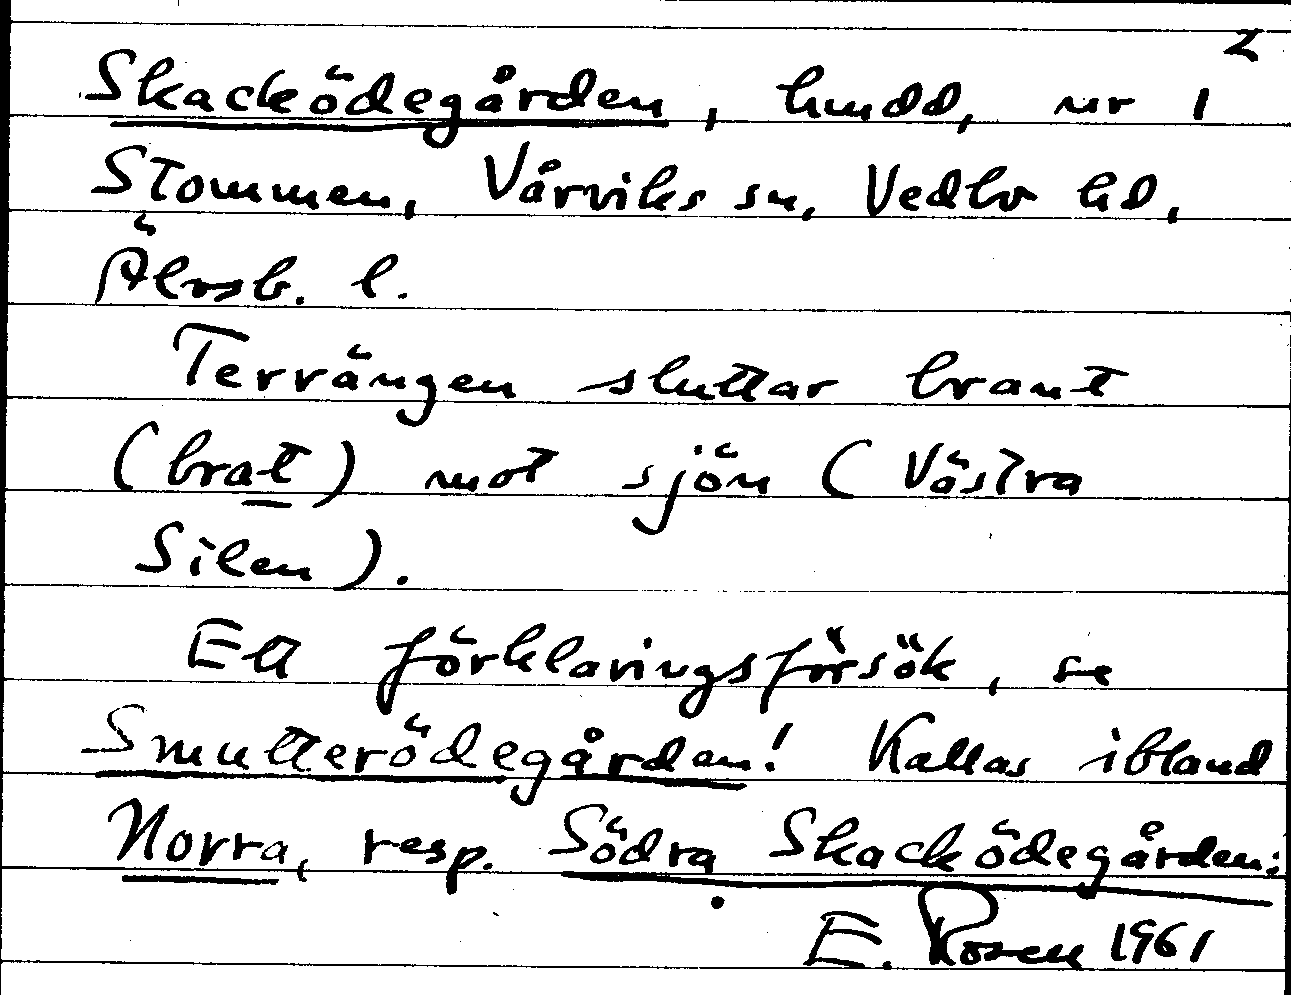 2
Skacködegården, hmdd, nr 1
Stommen, Vårviks sn, Vedbo hd,
Älvsb. l.
Terrängen sluttar brant
(brat) mot sjön (Västra
Silen).
Ett förklaringsförsök, se
Smutterödegården! Kallas ibland
Norra, resp. Södra Skacködegården.
E. Rosen 1961